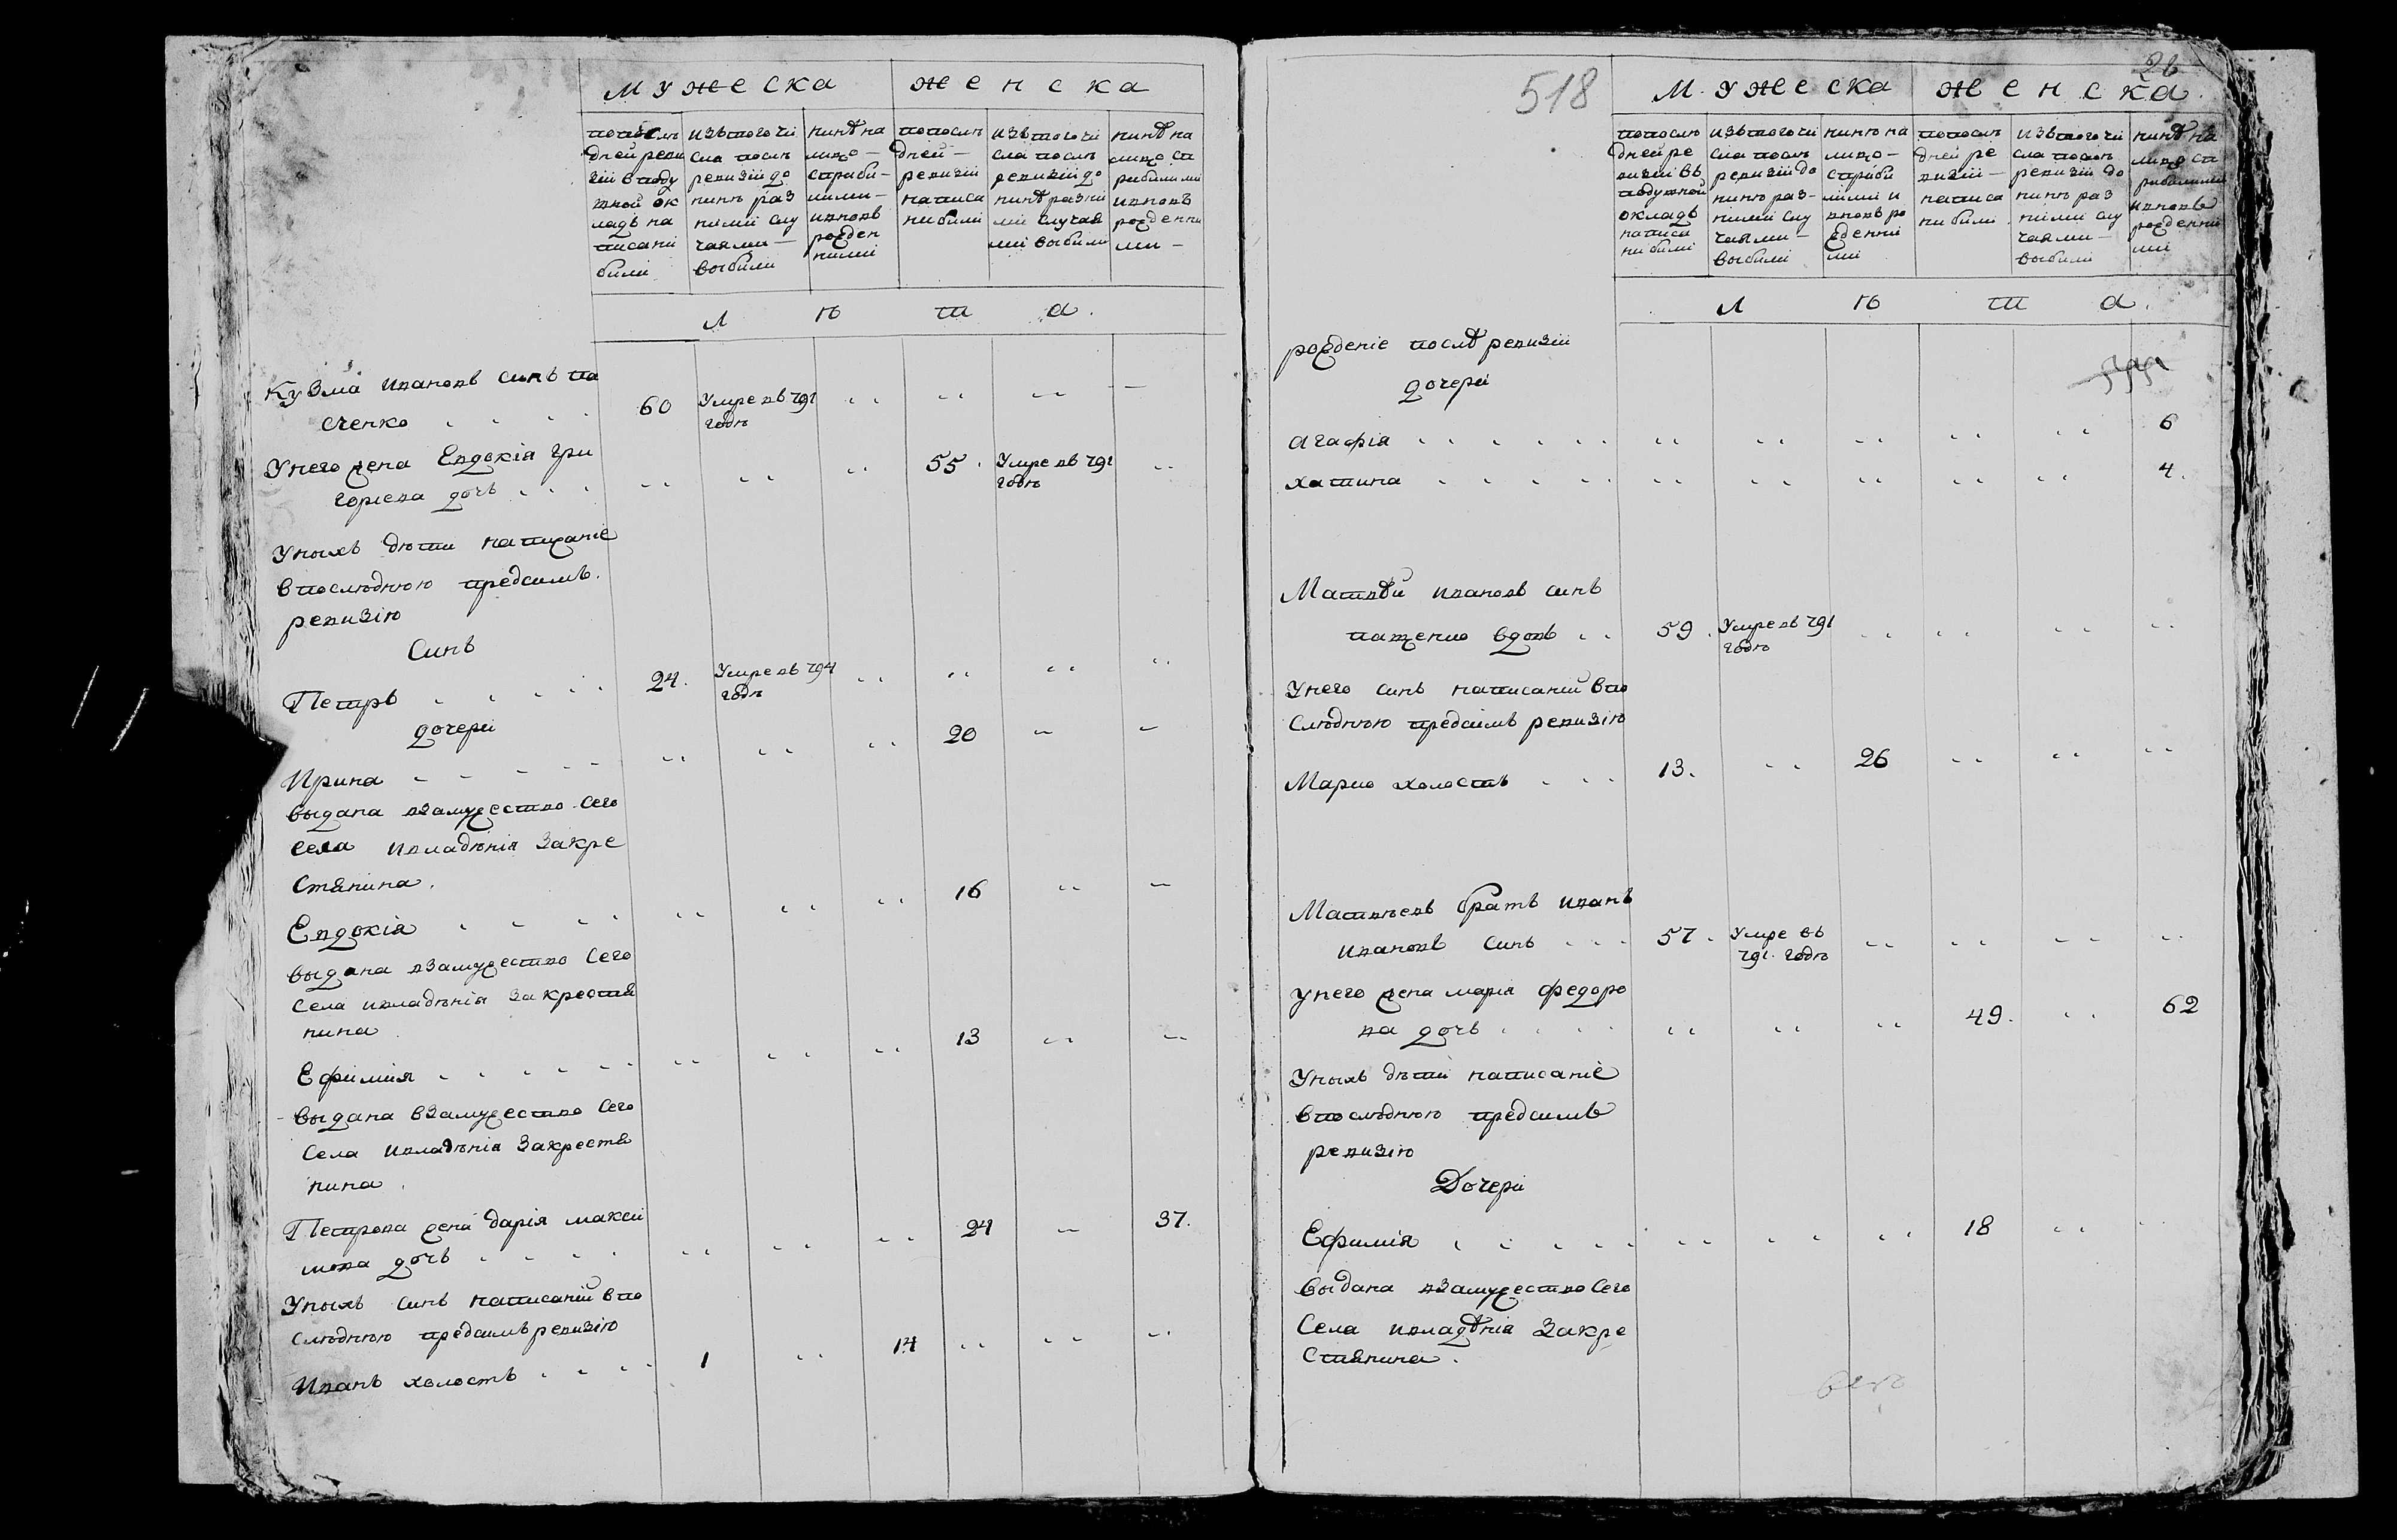 мужеска женска
попослѣ дней реви зіи вподу шной ок ладъ на писани били
изътого чи сла послѣ ревизіи до нинѣ раз ними слу чаями — выбили
нинѣ на лицо — сприби— лими— ивновь рожден ними
попослѣ дней — ревизіи написа ни били
изътого чи сла послѣ ревизіи до нинѣ разни ми случая ми выбили
нинѣ на лицо сп рибилими ивновь рожденни ми —
л ѣ т а.
Кузма ивановъ синъ па
сченко 60 Умре въ 791 годѣ
Унего жена Евдокія гри
горіева дочь 55 Умре въ 791 годѣ
Унихъ дѣти написаніе
впослѣднюю предсимъ.
ревизію
Синъ
Петръ 24. Умре въ 794 годѣ
дочери
Ирина 20
выдана взамужество сего
села ивладѣнія закре
стянина.
Евдокія 16
выдана взамужество сего
села ивладѣнія за крестя
нина.
Ефимия 13
выдана взамужество сего
села ивладѣнія закрестя
нина.
Петрова жена дарія макси
мова дочь 24 37.
Унихъ синъ написаній впо
слѣднюю предсимъ ревизію
Иванъ холостъ 1 14
518
26
мужеска женска.
попослѣ дней ре визіи въ подушной окладъ написа ни били
изътого чи сла послѣ ревизіи до нинѣ раз— ними слу чаями — выбили
нинѣ на лицо — сприби лими и вновь ро жденни ми
попослѣ дней ре визіи — написа ни били.
изътого чи сла послѣ ревизіи до нинѣ раз ними слу чаями — выбили
нинѣ на лицо сп рибилими ивновь рожденни ми
л ѣ т а.
рожденіе послѣ ревизіи
дочери
агафія 6
хатина 4.
Матвѣй ивановъ синъ
пащенко вдовъ 59. Умре въ 791 годѣ
Унего синъ написаній впо
слѣднюю предсимъ ревизію
Марко холостъ 13. 26
Матвѣевъ братъ иванъ
ивановъ синъ 57. Умре въ 791. годѣ
Унего жена марія федоро
ва дочь 49. 62
Унихъ дѣти написаніе
впослѣднюю предсимъ
ревизію
Дочери
Ефимія 18
выдана взамужество сего
села ивладѣнія закре
стянина.